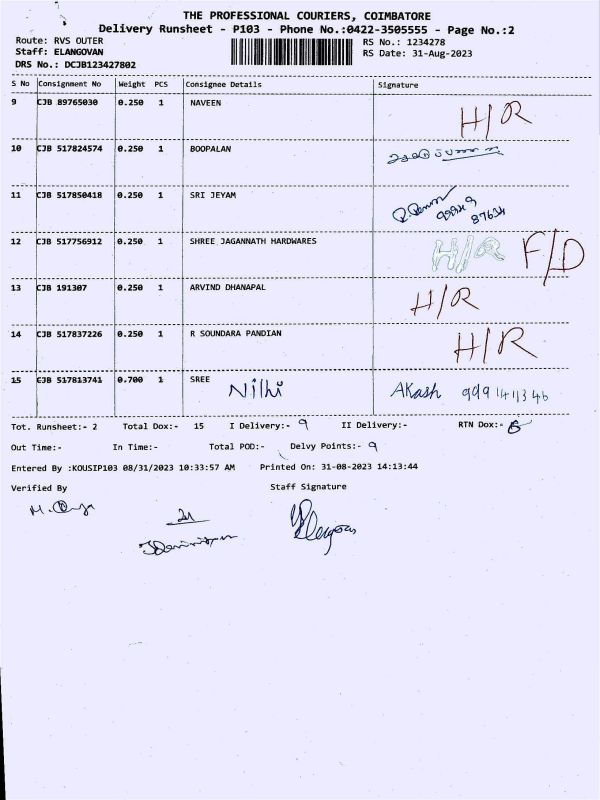 THE PROFESSIONAL COURIERS, COIMBATORE
Delivery Runsheet - P103 - Phone No.:0422-3505555 - Page No.:2
Route: RVS OUTER
RS No.: 1234278
Staff: ELANGOVAN
RS Date: 31-Aug-2023
DRS No.: DCJB123427802
S No Consignment No Weight PCS Consignee Details Signature
9 CJB 89765030 0.250 1 NAVEEN H/R
10 CJB 517824574 0.250 1 BOOPALAN
11 CJB 517850418 0.250 1 SRI JEYAM
12 CJB 517756912 0.250 1 SHREE JAGANNATH HARDWARES H/R F/D
13 CJB 191307 0.250 1 ARVIND DHANAPAL H/R
14 CJB 517837226 0.250 1 R SOUNDARA PANDIAN H/R
15 CJB 517813741 0.700 1 SREE Nilhi Akash
Tot. Runsheet:- 2 Total Dox:- 15 I Delivery:- 9 II Delivery:- RTN Dox:- 6
Out Time:- In Time:- Total POD:- Delvy Points:- 9
Entered By :KOUSIP103 08/31/2023 10:33:57 AM Printed On: 31-08-2023 14:13:44
Verified By Staff Signature